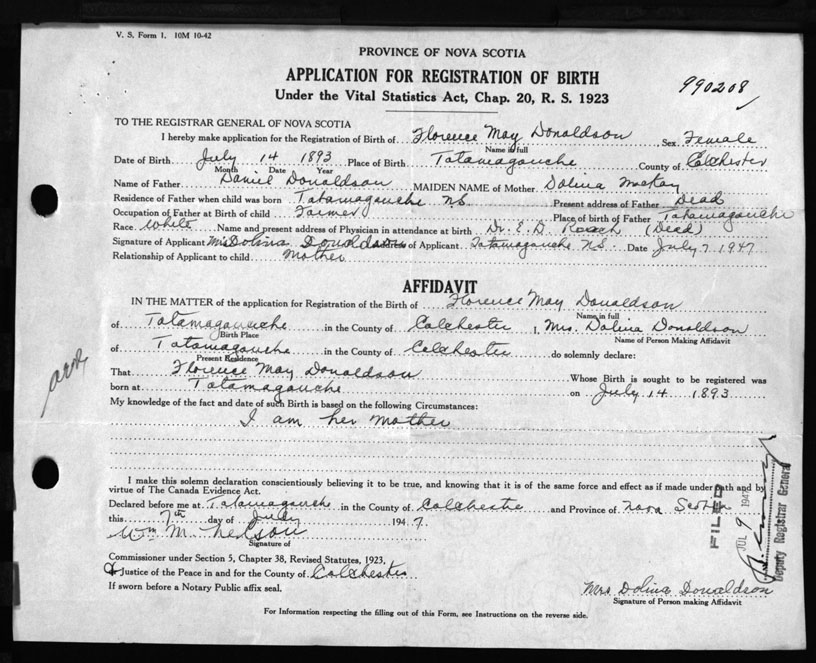 V. S. Form 1. 10M 10-42
PROVINCE OF NOVA SCOTIA
APPLICATION FOR REGISTRATION OF BIRTH
990208
Under the Vital Statistics Act, Chap. 20, R. S. 1923
TO THE REGISTRAR GENERAL OF NOVA SCOTIA
I hereby make application for the Registration of Birth of Florence May Donaldson Sex Female
Name in full
Date of Birth July 14 1893 Place of Birth Tatamagouche County of Colchester
Month Date Year
Name of Father Daniel Donaldson MAIDEN NAME of Mother Dolina MacKay
Residence of Father when child was born Tatamagouche N.S. Present address of Father Dead
Occupation of Father at Birth of child Farmer Place of birth of Father Tatamagouche
Race White Name and present address of Physician in attendance at birth Dr. E. D. Roach (Dead)
Signature of Applicant Mrs Dolina Donaldson Address of Applicant Tatamagouche N.S. Date July 7 1947
Relationship of Applicant to child Mother
AFFIDAVIT
IN THE MATTER of the application for Registration of the Birth of Florence May Donaldson
Name in full
of Tatamagouche in the County of Colchester I, Mrs. Dolina Donaldson
Birth Place Name of Person Making Affidavit
of Tatamagouche in the County of Colchester do solemnly declare:
Present Residence
That Florence May Donaldson Whose Birth is sought to be registered was
born at Tatamagouche on July 14 1893
My knowledge of the fact and date of such Birth is based on the following Circumstances:
I am her mother
I make this solemn declaration conscientiously believing it to be true, and knowing that it is of the same force and effect as if made under oath and by
virtue of The Canada Evidence Act.
Declared before me at Tatamagouche in the County of Colchester and Province of Nova Scotia
this 7th day of July 1947.
Wm M. Nelson
Signature of
Commissioner under Section 5, Chapter 38, Revised Statutes, 1923,
Justice of the Peace in and for the County of Colchester
If sworn before a Notary Public affix seal.
Mrs Dolina Donaldson
Signature of Person making Affidavit
For Information respecting the filling out of this Form, see Instructions on the reverse side.
FILED
JUL 9 1947
Deputy Registrar General